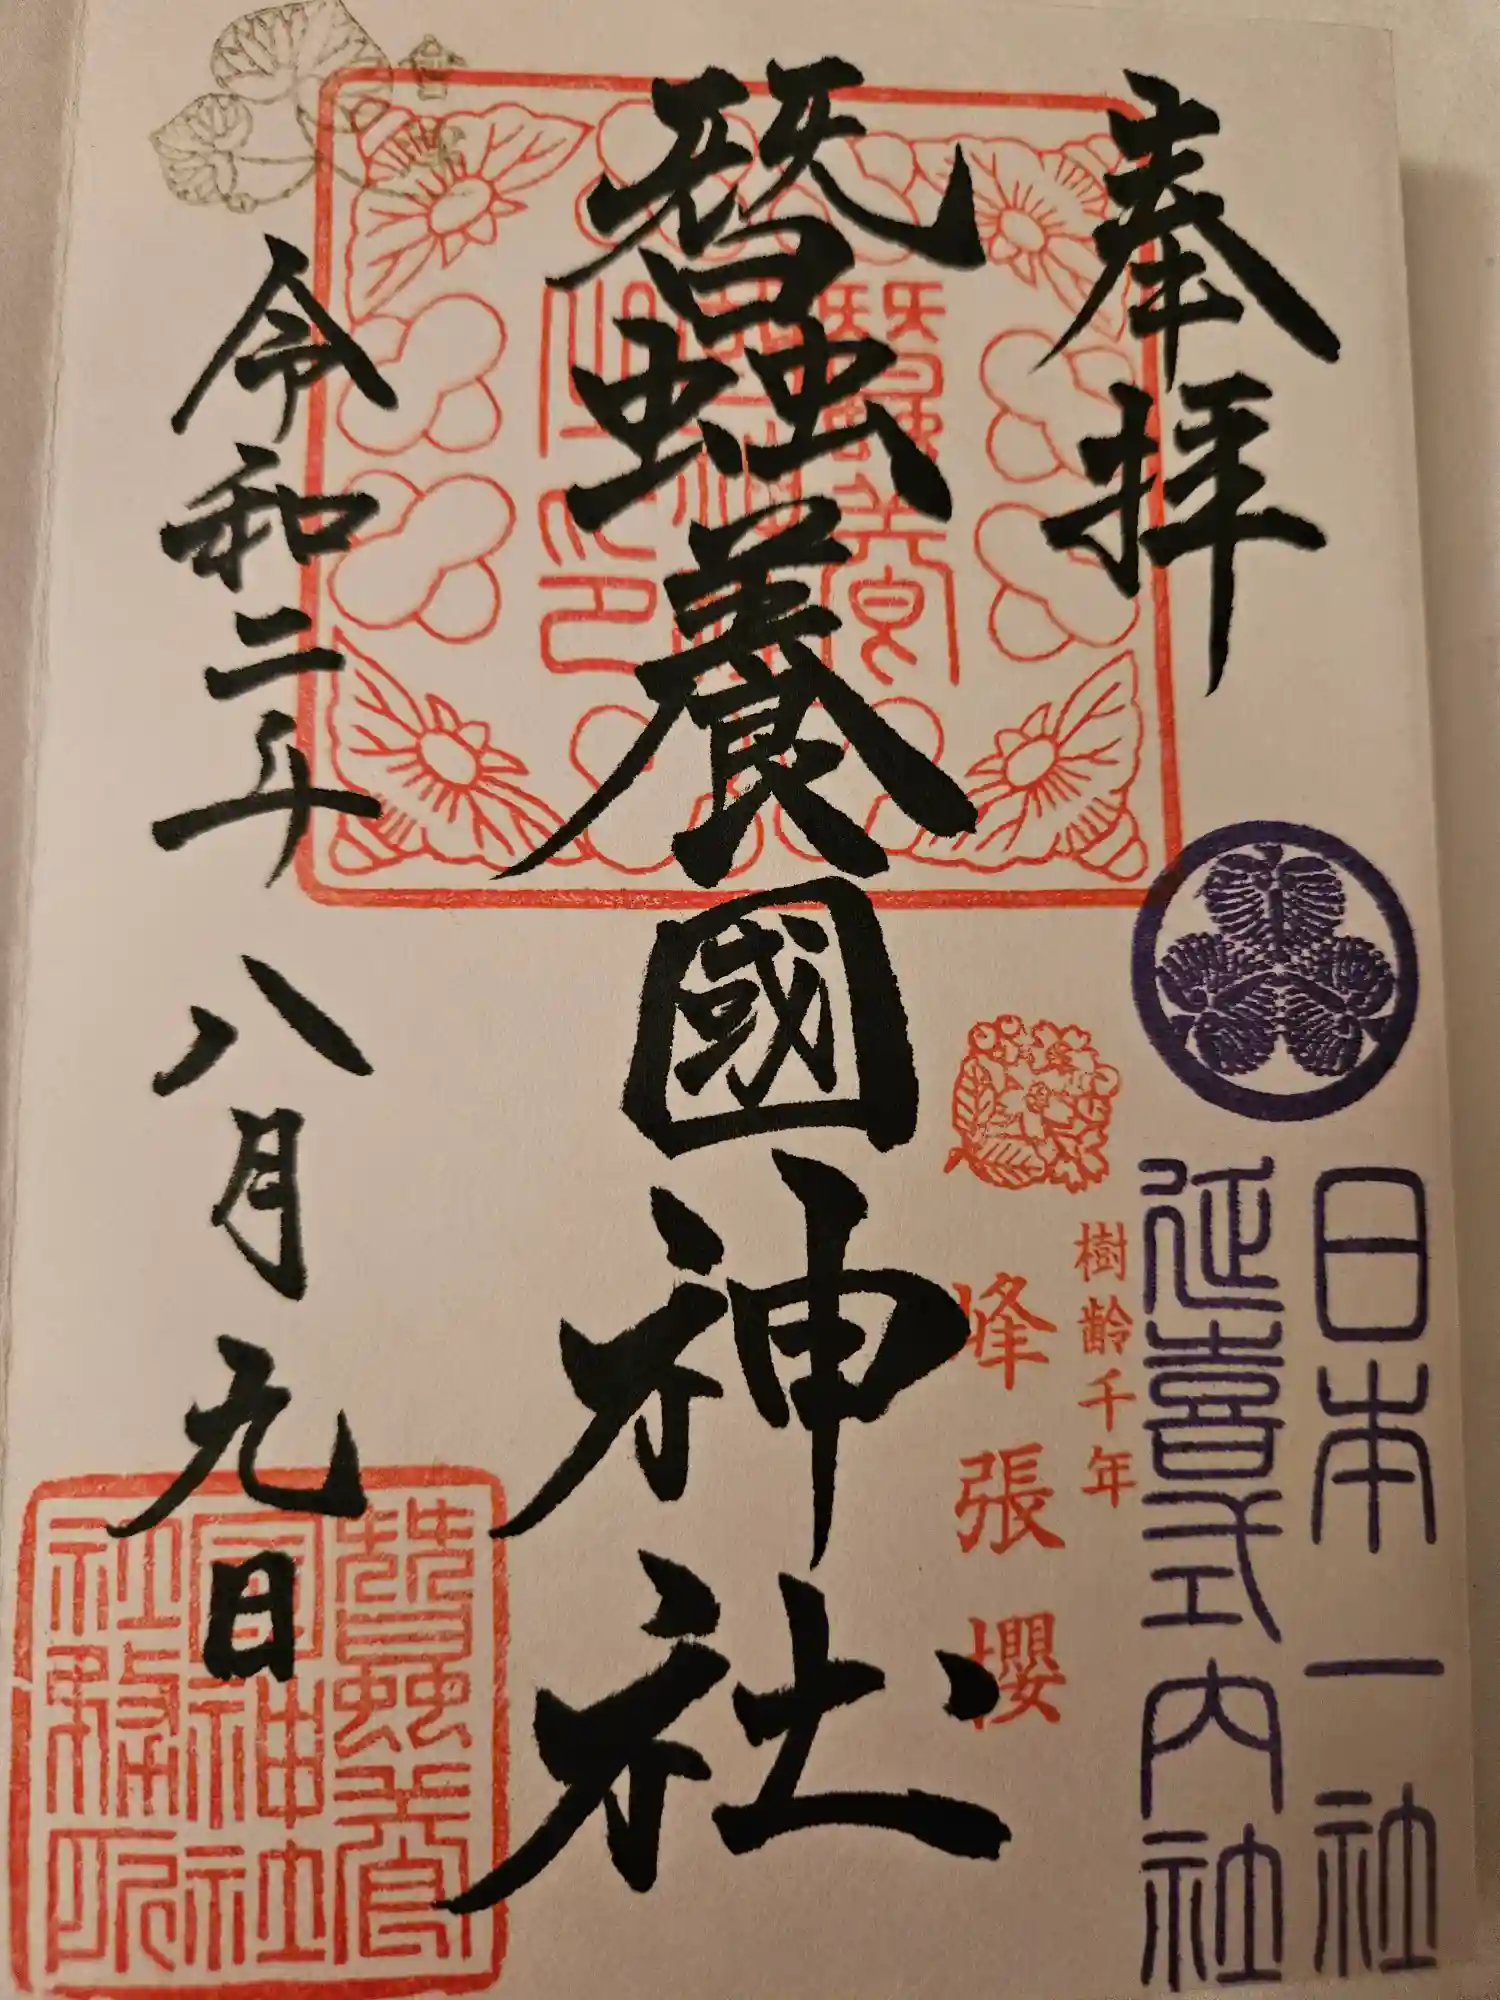 奉拝
日本一社
延喜式内社
樹齢千年
峰張櫻
蠶養國神社
蠶養國神社社務所
令和二年八月九日